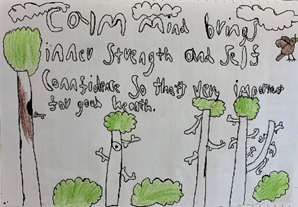 Calm mind brings
inner strength and self
confidence so that's very important
for good health.